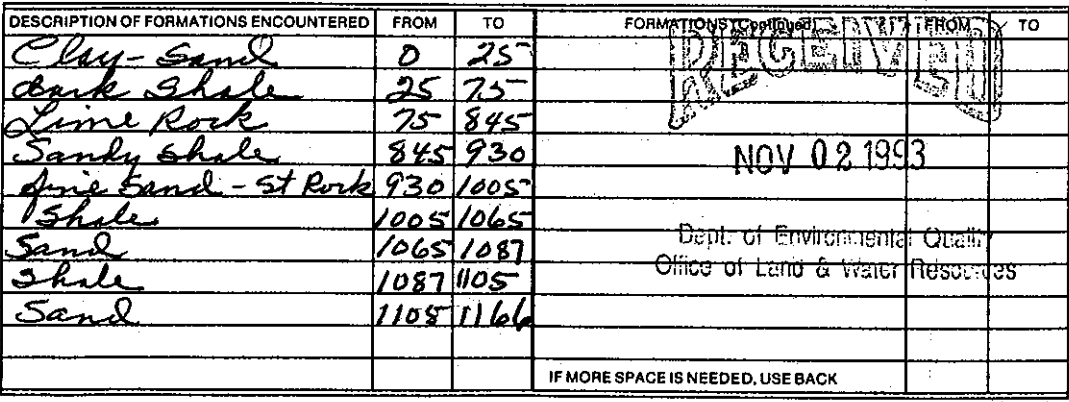 DESCRIPTION OF FORMATIONS ENCOUNTERED FROM TO FORMATIONS (Continued) FROM TO
Clay-Sand 0 25
dark Shale 25 75
Lime Rock 75 845
Sandy Shale 845 930
fine Sand - St Rock 930 1005
Shale 1005 1065
Sand 1065 1087
Shale 1087 1105
Sand 1105 1166
RECEIVED
NOV 02 1993
Dept. of Environmental Quality
Office of Land & Water Resources
IF MORE SPACE IS NEEDED, USE BACK